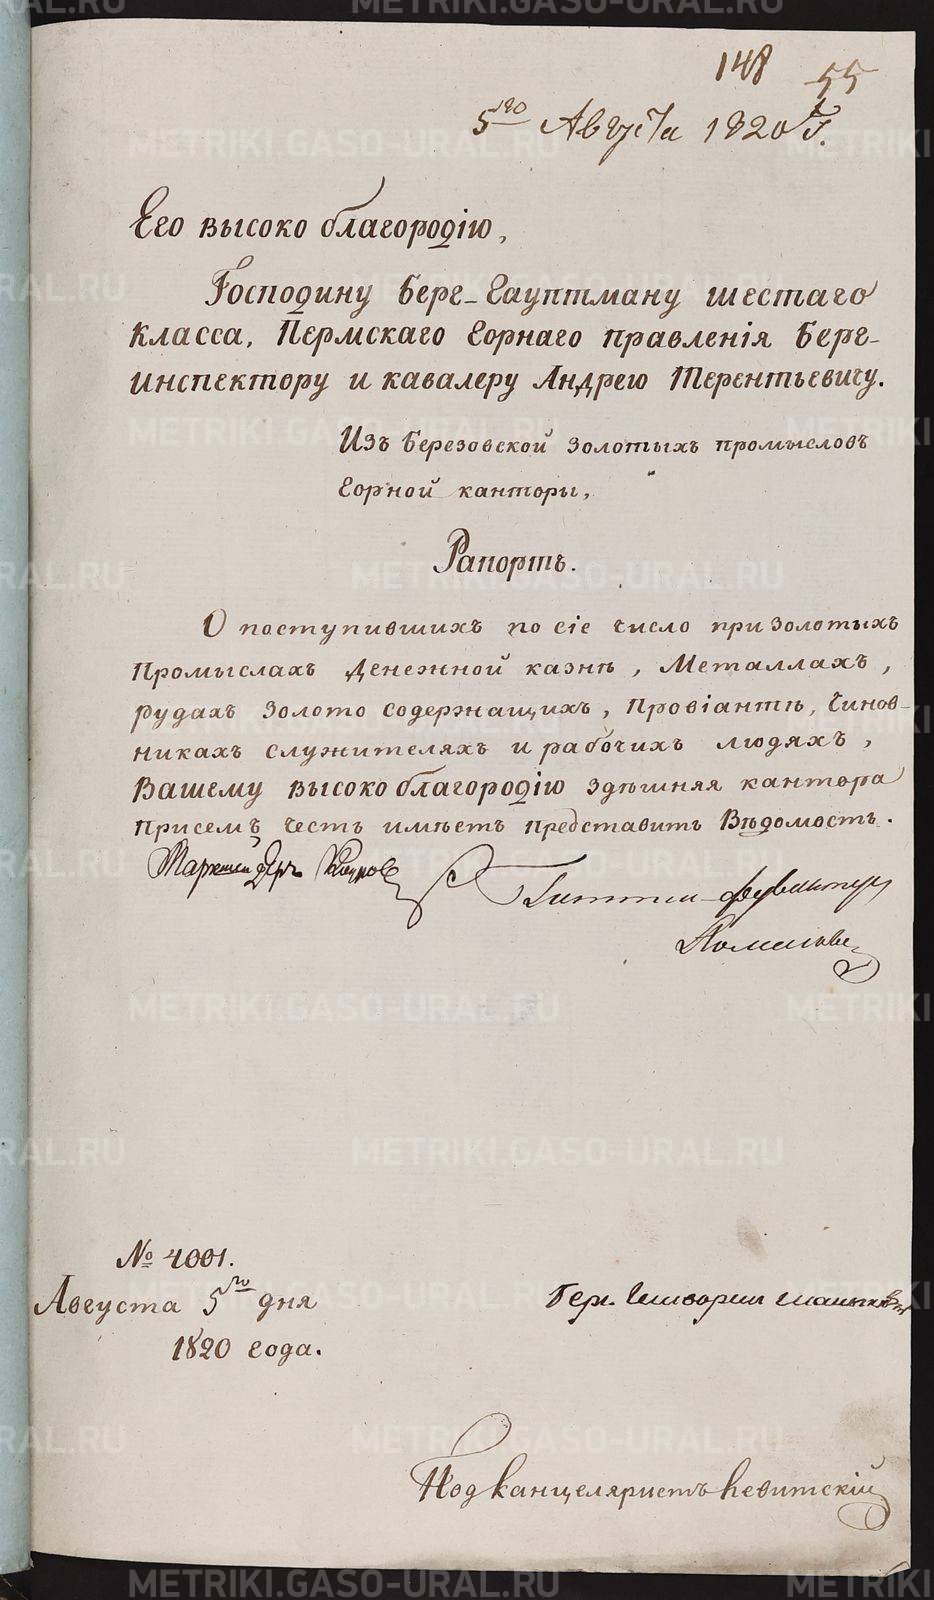 148 55
5го Августа 1820 Г.
Его высоко благородію,
Господину Берг-Гауптману шестаго
класса, Пермскаго Горнаго правленія Берг-
инспектору и кавалеру Андрею Терентьевичу.
Изъ Березовской золотыхъ промысловъ
Горной канторы,
Рапортъ.
О поступившихъ по сіе число при золотыхъ
Промыслахъ Денежной казнѣ, Металлахъ,
рудахъ золото содержащихъ, Провіантѣ, Чинов-
никахъ служителяхъ и рабочихъ людяхъ,
Вашему высоко благородію здѣшняя кантора
присемъ честь имѣетъ представить Вѣдомость.
Маркшейдеръ
Гиттен-фервалтер
№ 4001.
Августа 5го дня
1820 года.
Берг.
Подканцеляристъ
METRIKI.GASO-URAL.RU